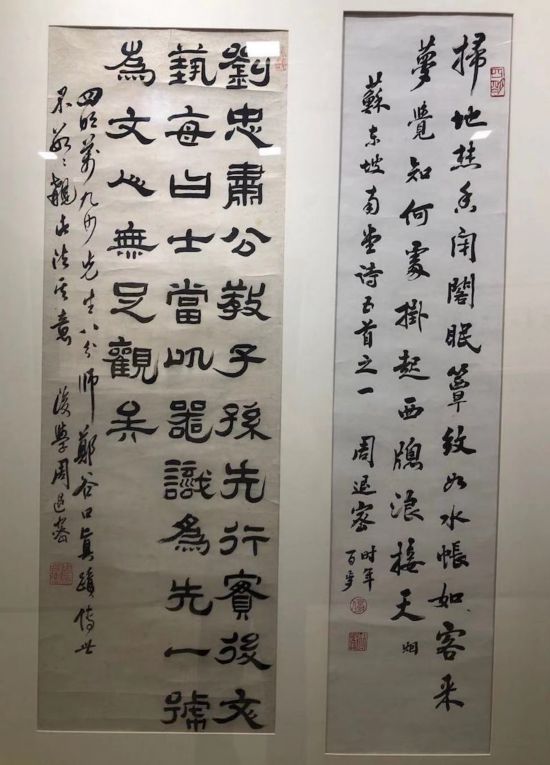 掃地焚香閉閣眠簟紋如水帳如客來
夢覺知何處掛起西牕浪接天烟
蘇東坡南堂诗五首之一 周退密
时年
百岁
劉忠肅公教子孫先行實後文
藝每曰士當以器識為先一號
為文人無足觀矣
四明萬九沙先生八分師鄭谷口真蹟傳世
不覯此法其意 後學周退密